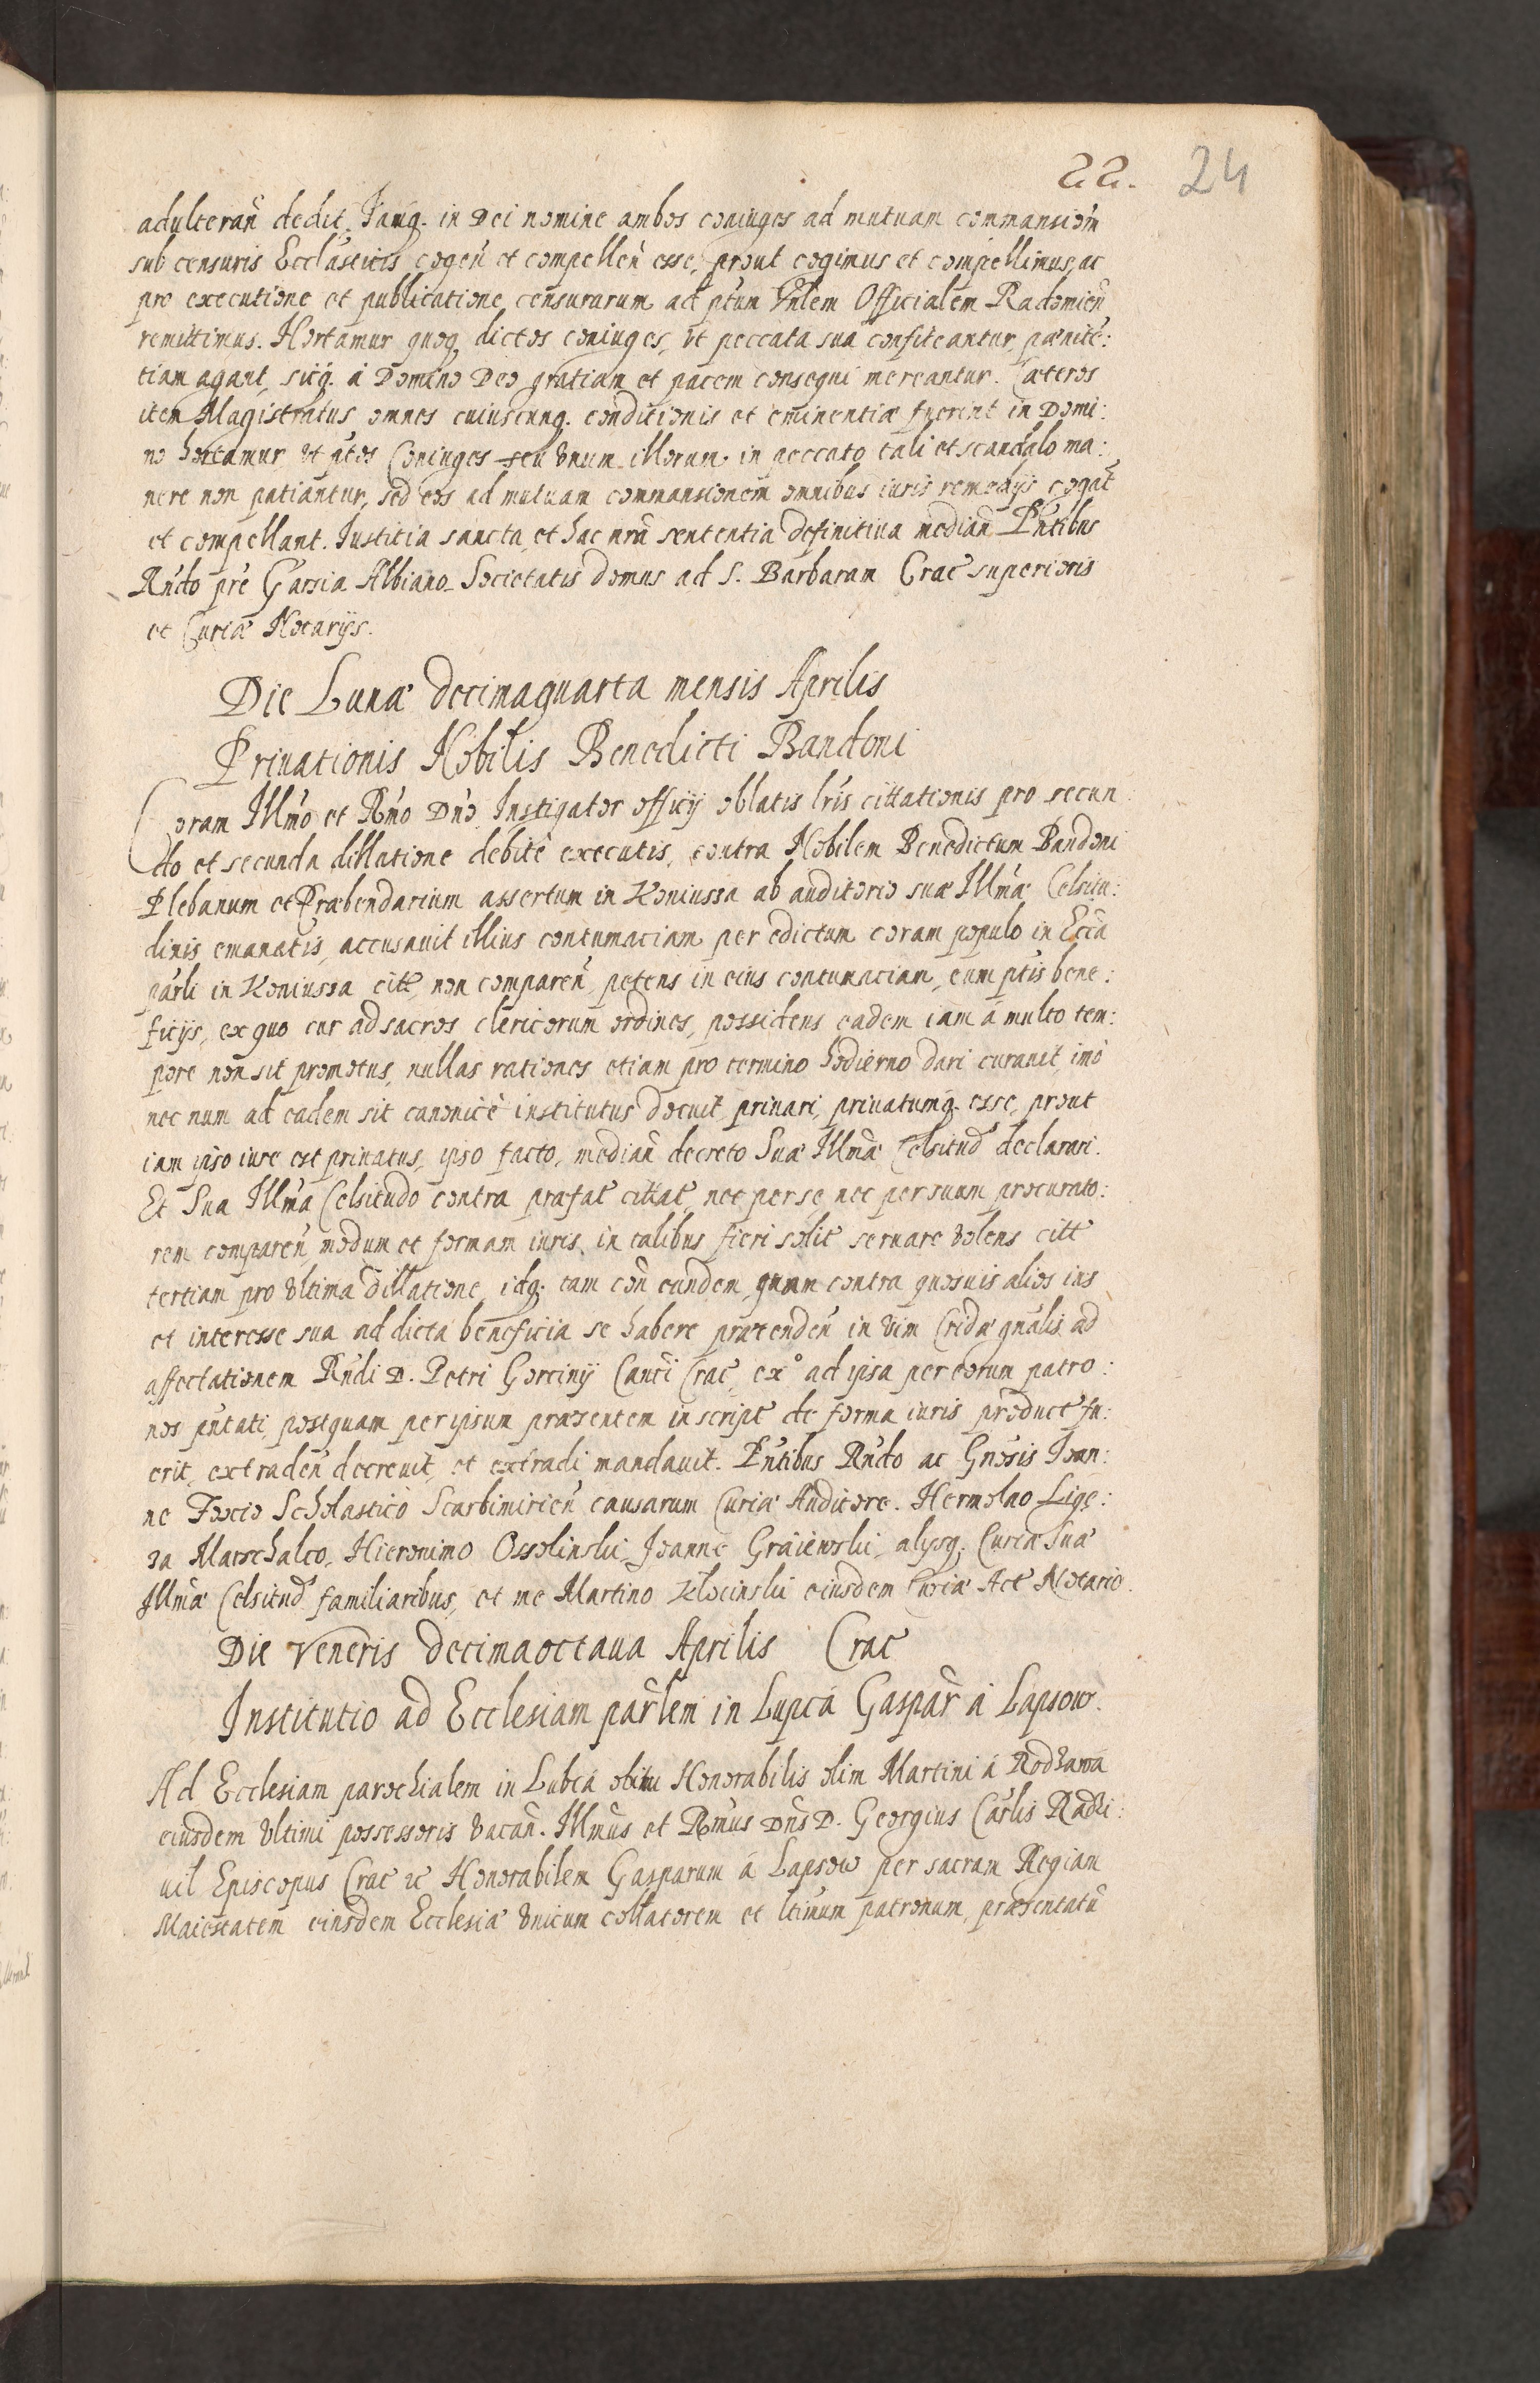 22. 24
adulteran̄ dedit. Itaq. in Dei nomine ambos coniuges ad mutuam commansiom̄
sub censuris Eccl̄asticis cogen̄ et compellen̄ esse, prout cogimus et compellimus, ac
pro executione et publicatione censurarum ad pn̄tem Officialem Radomien̄
remittimus. Hortamur quoq. dictos coniuges, vt peccata sua confiteantur pœnitē:
tiam agant, sicq. á Domino Deo gratiam et pacem consequi mereantur. Cæteros
item Magistratus omnes cuiuscunq. conditionis et eminentiæ fuerint in Domi:
no hortamur vt p̄tos Coniuges seu vnum illorum in peccato tali et scandalo ma:
nere non patiantur, sed eos ad mutuam commansionem̄ omnibus iuris remedijs cogāt
et compellant. Iustitia sancta, et hac nrā sententia definitiua median̄ Pn̄tibus
Rn̄do prē Garsia Albiano Societatis domus ad S. Barbaram Crac̄ superioris
et Curiæ Notarijs.
Die Lunæ decimaquarta mensis Aprilis
Priuationis Nobilis Benedicti Bandoni
Coram Illm̄o et Rm̄o Dn̄o Instigator officij oblatis lr̄is cittationis pro secun:
do et secunda dillatione debitè executis, contra Nobilem Benedictum Bandoni
Plebanum et Præbendarium assertum in Koniussa ab auditorio suæ Illm̄æ Celsitu:
dinis emanatis, accusauit illius contumaciam per edictum coram populo in Eccā
parli in Koniussa citt̄, non comparen̄ petens in eius contumaciam, eum pt̄is bene:
ficijs, ex quo cur ad sacros clericorum ordines, possidens eadem iam á multo tem:
pore non sit promotus, nullas rationes etiam pro termino hodierno dari curauit, imò
nec num ad eadem sit canonicè institutus docuit, priuari, priuatumq. esse, prout
iam ipso iure est priuatus, ipso facto, median̄ decreto Suæ Illm̄æ Celsitud̄ declarari.
Et Sua Illm̄a Celsitudo contra præfat̄ cittat̄, nec per se, nec per suum procurato:
rem comparen̄, modum et formam iuris in talibus fieri solit̄ seruare volens citt̄
tertiam pro vltima dillatione, idq. tam con̄ eundem, quam contra quosuis alios ius
et interesse sua ad dicta beneficia se habere prætenden̄ in vim Cridæ gn̄alis ad
affectationem Rn̄di D. Petri Gorciny Can̄ci Crac̄, ex° ad ipsa per eorum patro:
nos pn̄tati, postquam per ipsum præsentem in script̄ de forma iuris product̄ fu:
erit, extraden̄ decreuit, et extradi mandauit. Pn̄tibus Rn̄do ac Gn̄osis Ioan:
ne Foxio Scholastico Scarbimirien̄ causarum Curiæ Auditore. Hermolao Ligę:
za Marschalco, Hieronimo Ossolinski, Joanne Graiewski, alijsq. Curiæ Suæ
Illm̄æ Celsitud̄ familiaribus, et me Martino Klocinski eiusdem Curiæ Act̄ Notario.
Die Veneris decimaoctaua Aprilis Crac̄
Institutio ad Ecclesiam parlem in Lupcá Gaspar̄ á Lapsow.
Ad Ecclesiam parochialem in Lubcá obitu Honorabilis olim Martini á Rodzawá
eiusdem vltimi possessoris vacan̄. Illm̄us et Rm̄us Dn̄s D. Georgius Car̄lis Radzi:
uil Episcopus Crac̄ &c Honorabilem Gasparum á Lapsow per sacram Regiam
Maiestatem eiusdem Ecclesiæ vnicum collatorem et ltimum patronum, præsentatū